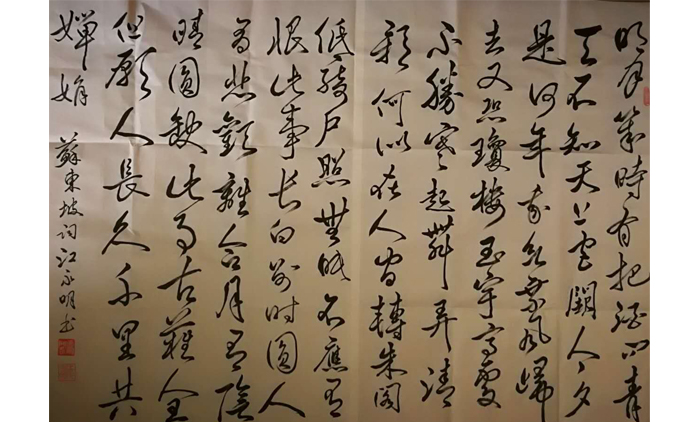 明月幾時有把酒问青
天不知天上宫闕今夕
是何年我欲乘风歸
去又恐瓊楼玉宇高處
不勝寒起舞弄清
影何似在人间轉朱阁
低绮户照無眠不應有
恨何事长向别时圓人
有悲歡離合月有陰
晴圓缺此事古難全
但願人長久千里共
嬋娟
蘇東坡词江永明书